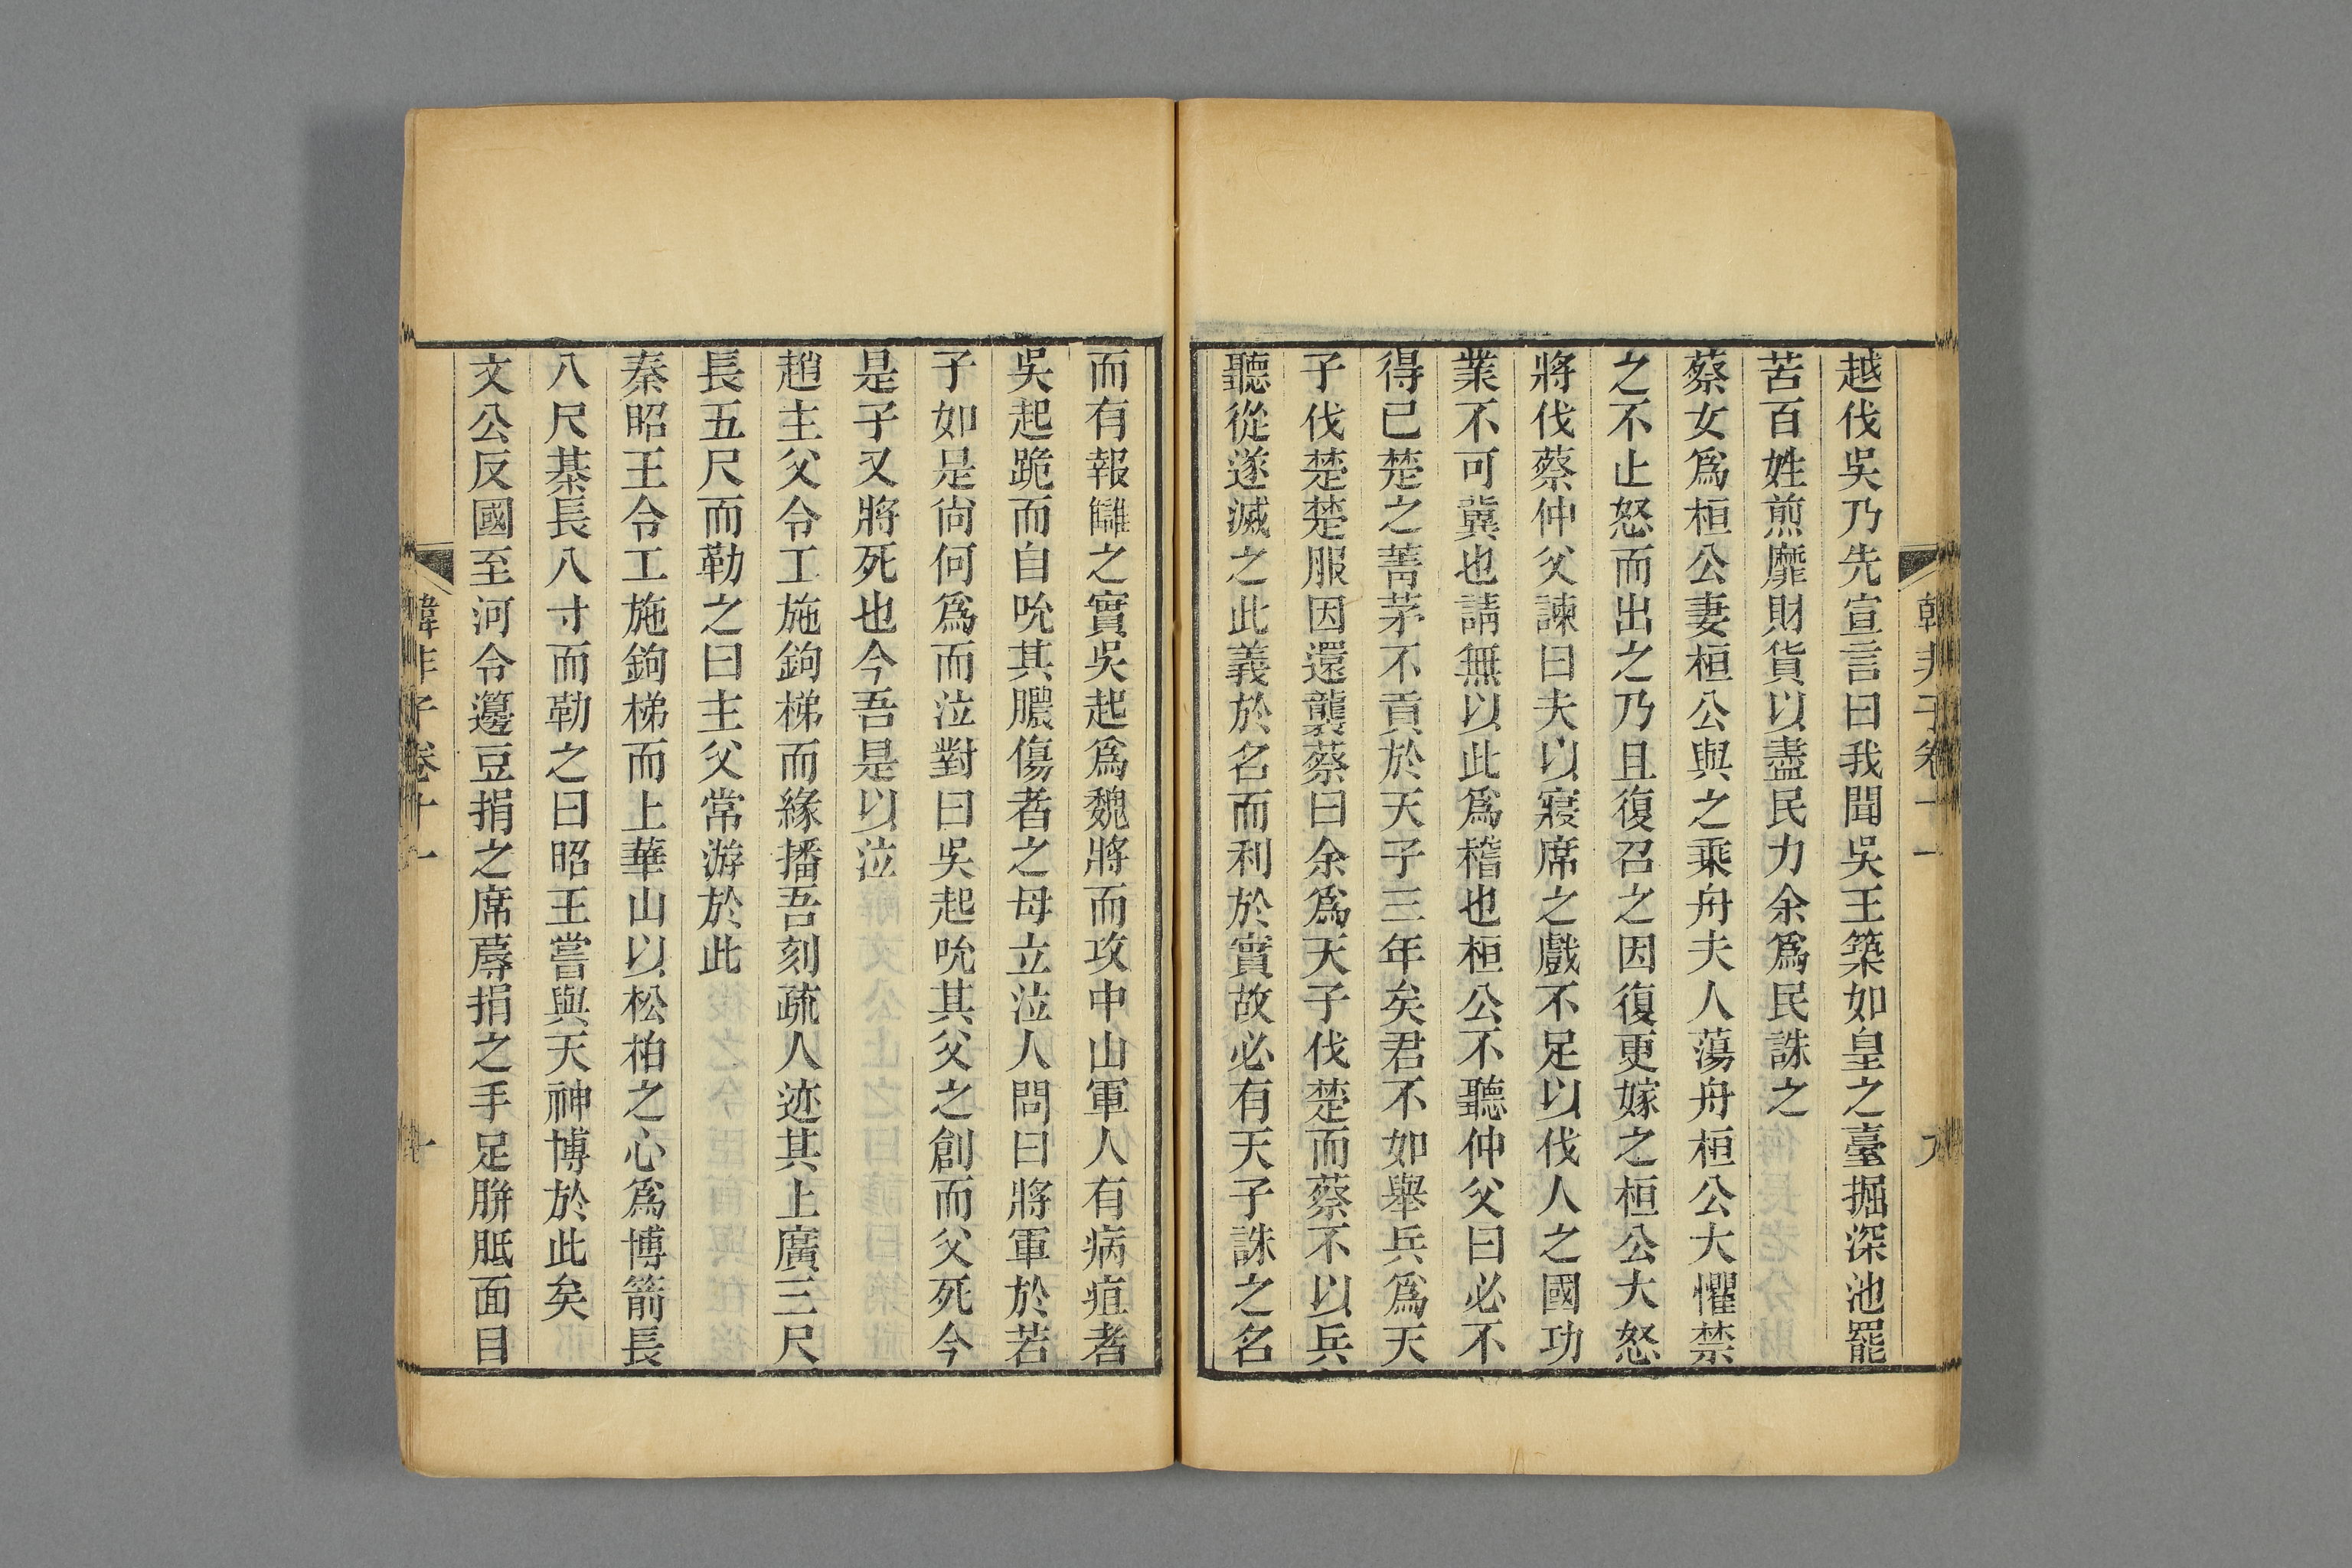 韓非子卷十一
越伐吳乃先宣言曰我聞吳王築如皇之臺掘深池罷
苦百姓煎靡財貨以盡民力余爲民誅之
蔡女爲桓公妻桓公與之乘舟夫人蕩舟桓公大懼禁
之不止怒而出之乃且復召之因復更嫁之桓公大怒
將伐蔡仲父諫曰夫以寢席之戲不足以伐人之國功
業不可冀也請無以此爲稽也桓公不聽仲父曰必不
得已楚之菁茅不貢於天子三年矣君不如舉兵爲天
子伐楚楚服因還襲蔡曰余爲天子伐楚而蔡不以兵
聽從遂滅之此義於名而利於實故必有天子誅之名
而有報讎之實吳起爲魏將而攻中山軍人有病疽者
吳起跪而自吮其膿傷者之母立泣人問曰將軍於若
子如是尙何爲而泣對曰吳起吮其父之創而父死今
是子又將死也今吾是以泣
趙主父令工施鉤梯而緣播吾刻疏人迹其上廣三尺
長五尺而勒之曰主父常游於此
秦昭王令工施鉤梯而上華山以松柏之心爲博箭長
八尺棊長八寸而勒之曰昭王嘗與天神博於此矣
文公反國至河令籩豆捐之席蓐捐之手足胼胝面目
韓非子卷十一
十